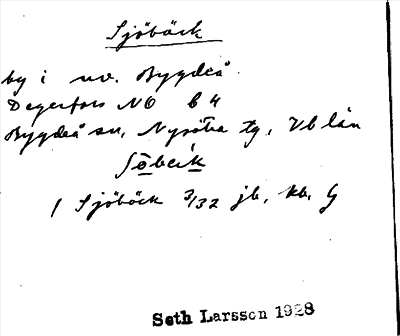 Sjöbäck
by i nv. Bygdeå.
Degerfors NO b 4
Bygdeå sn, Nysätra tg, Vb län
1 Sjöbäck 3/32 jb, kb. G
Seth Larsson 1928